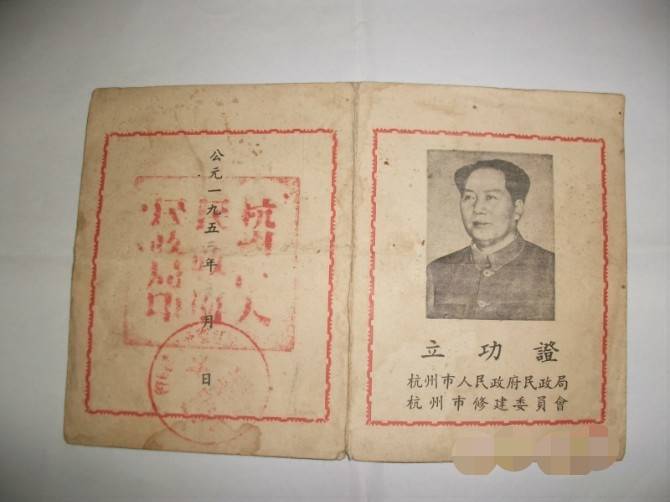 立功證
杭州市人民政府民政局
杭州市修建委員會
公元一九五 年 月 日
杭州市人
民政府
民政局印